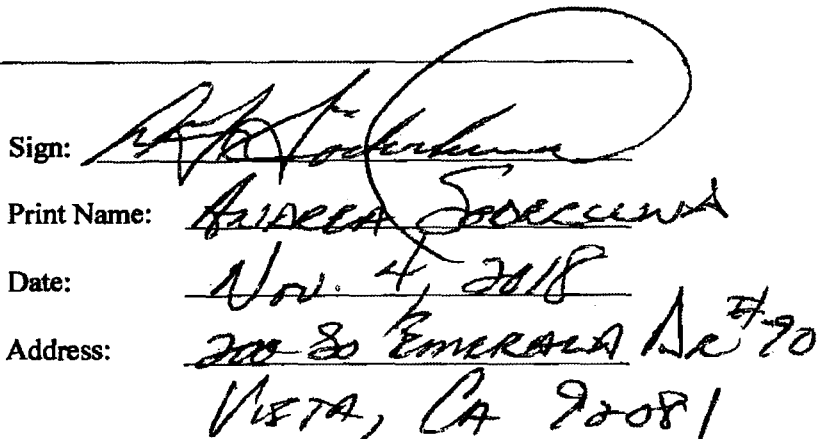 Sign:
Print Name: ANDREA SODERLUND
Date: Nov. 4, 2018
Address: 200 So EMERALD DR #90
VISTA, CA 92081